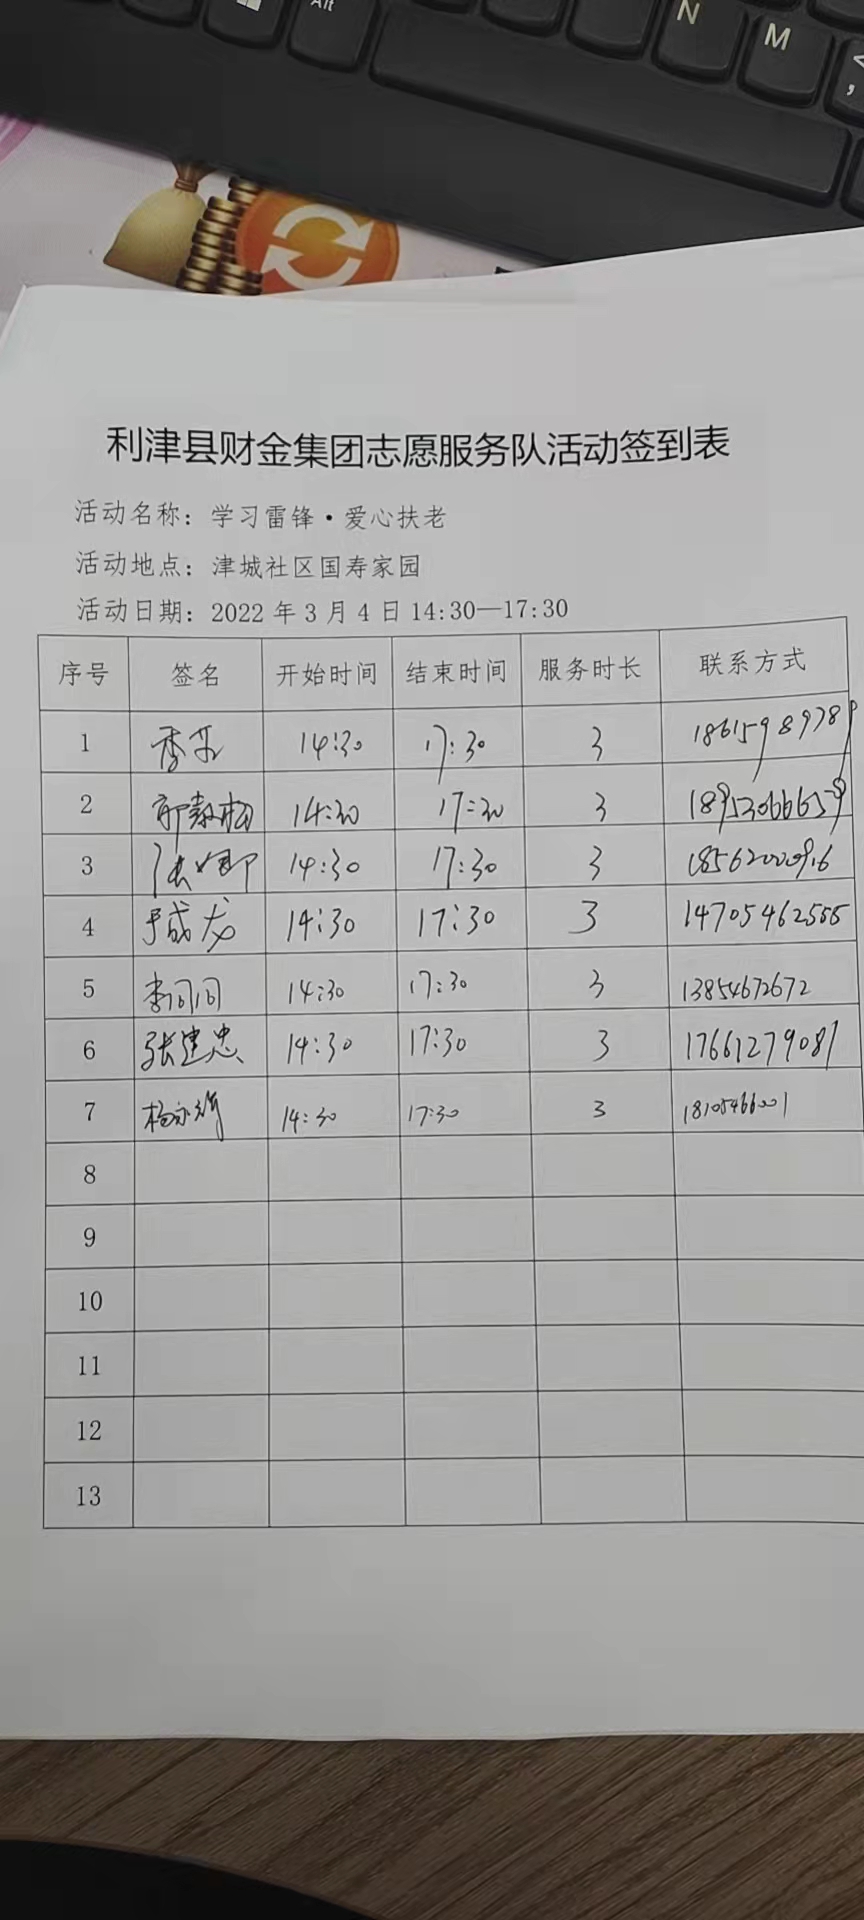 Alt
N
M
<
,
利津县财金集团志愿服务队活动签到表
活动名称：学习雷锋·爱心扶老
活动地点：津城社区国寿家园
活动日期：2022 年 3 月 4 日 14:30—17:30
序号 签名 开始时间 结束时间 服务时长 联系方式
1 14:30 17:30 3 18615989789
2 14:30 17:30 3 18953066659
3 张娜 14:30 17:30 3 18562000916
4 成龙 14:30 17:30 3 14705462555
5 李闪闪 14:30 17:30 3 13854672672
6 张建忠 14:30 17:30 3 17661279081
7 杨永 14:30 17:30 3 18105466001
8
9
10
11
12
13